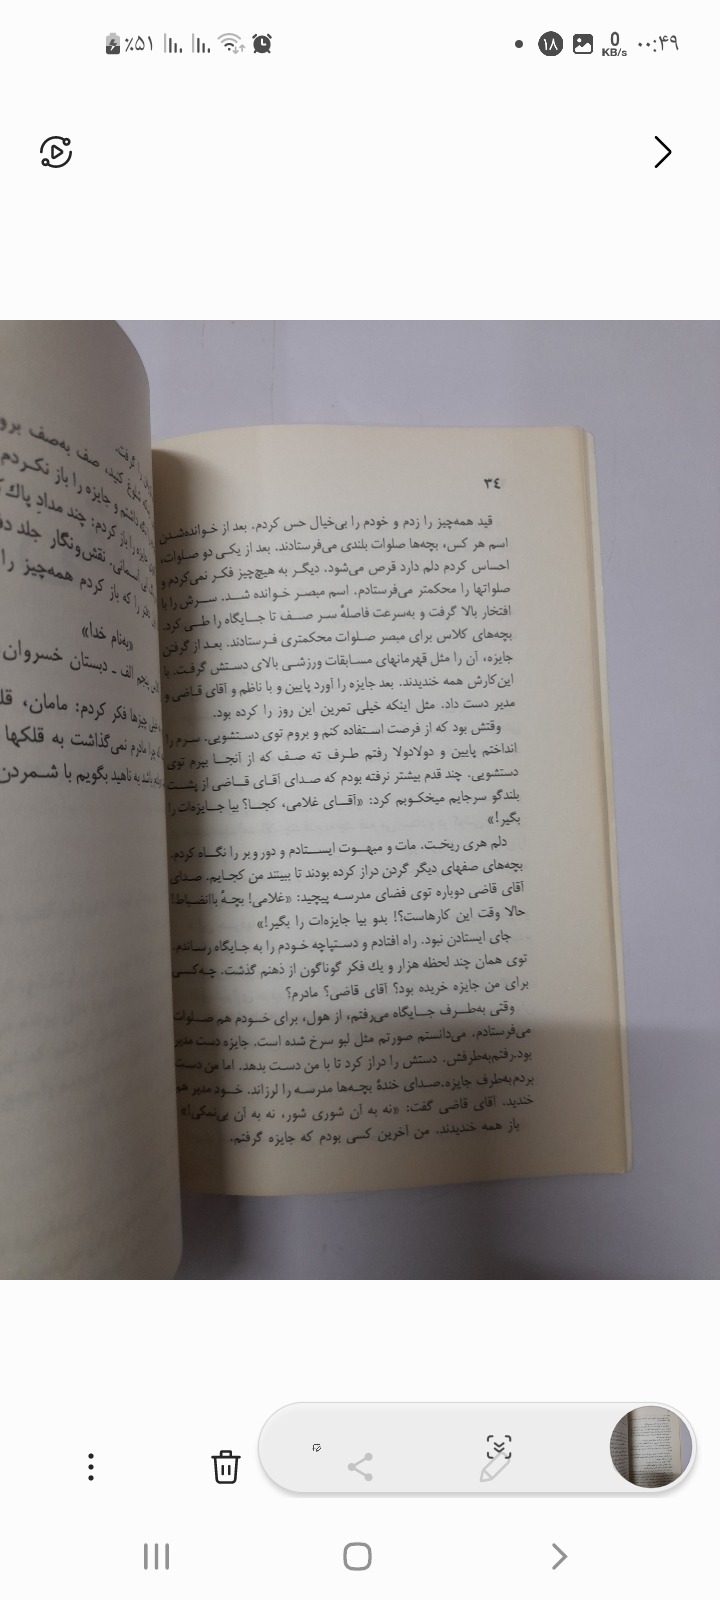 ٪۵۱
۱۸
0
KB/s
۰۰:۴۹
٣٤
قید همه‌چیز را زدم و خودم را بی‌خیال حس کردم. بعد از خوانده‌شدن
اسم هر کس، بچه‌ها صلوات بلندی می‌فرستادند. بعد از یکی دو صلوات،
احساس کردم دلم دارد قرص می‌شود. دیگر به هیچ‌چیز فکر نمی‌کردم و
صلواتها را محکمتر می‌فرستادم. اسم مبصر خوانده شد. سرش را با
افتخار بالا گرفت و به‌سرعت فاصلهٔ سر صف تا جایگاه را طی کرد.
بچه‌های کلاس برای مبصر صلوات محکمتری فرستادند. بعد از گرفتن
جایزه، آن را مثل قهرمانهای مسابقات ورزشی بالای دستش گرفت. با
این‌کارش همه خندیدند. بعد جایزه را آورد پایین و با ناظم و آقای قاضی و
مدیر دست داد. مثل اینکه خیلی تمرین این روز را کرده بود.
وقتش بود که از فرصت استفاده کنم و بروم توی دستشویی. سرم را
انداختم پایین و دولادولا رفتم طرف ته صف که از آنجا بپرم توی
دستشویی. چند قدم بیشتر نرفته بودم که صدای آقای قاضی از پشت
بلندگو سرجایم میخکوبم کرد: «آقای غلامی، کجا؟ بیا جایزه‌ات را
بگیر!»
دلم هری ریخت. مات و مبهوت ایستادم و دور و بر را نگاه کردم.
بچه‌های صفهای دیگر گردن دراز کرده بودند تا ببینند من کجایم. صدای
آقای قاضی دوباره توی فضای مدرسه پیچید: «غلامی! بچهٔ باانضباط!
حالا وقت این کارهاست؟! بدو بیا جایزه‌ات را بگیر!»
جای ایستادن نبود. راه افتادم و دستپاچه خودم را به جایگاه رساندم.
توی همان چند لحظه هزار و یك فکر گوناگون از ذهنم گذشت. چه‌کسی
برای من جایزه خریده بود؟ آقای قاضی؟ مادرم؟
وقتی به‌طرف جایگاه می‌رفتم، از هول، برای خودم هم صلوات
می‌فرستادم. می‌دانستم صورتم مثل لبو سرخ شده است. جایزه دست مدیر
بود.رفتم‌به‌طرفش. دستش را دراز کرد تا با من دست بدهد. اما من دست
بردم‌به‌طرف جایزه.صدای خندهٔ بچه‌ها مدرسه را لرزاند. خود مدیر هم
خندید. آقای قاضی گفت: «نه به آن شوری شور، نه به آن بی‌نمکی!»
باز همه خندیدند. من آخرین کسی بودم که جایزه گرفتم.
گرفت.
شلوغ کنید، صف به‌صف
داشتم و جایزه را باز نکردم
را باز کردم: چند مداد پاك
نقش‌ونگار جلد
را که باز کردم همه‌چیز را
«به‌نام خدا»
پنجم الف ـ دبستان خسروان
چیزها فکر کردم: مامان،
چرا مادرم نمی‌گذاشت به قلکها
به ناهید بگویم با شمردن